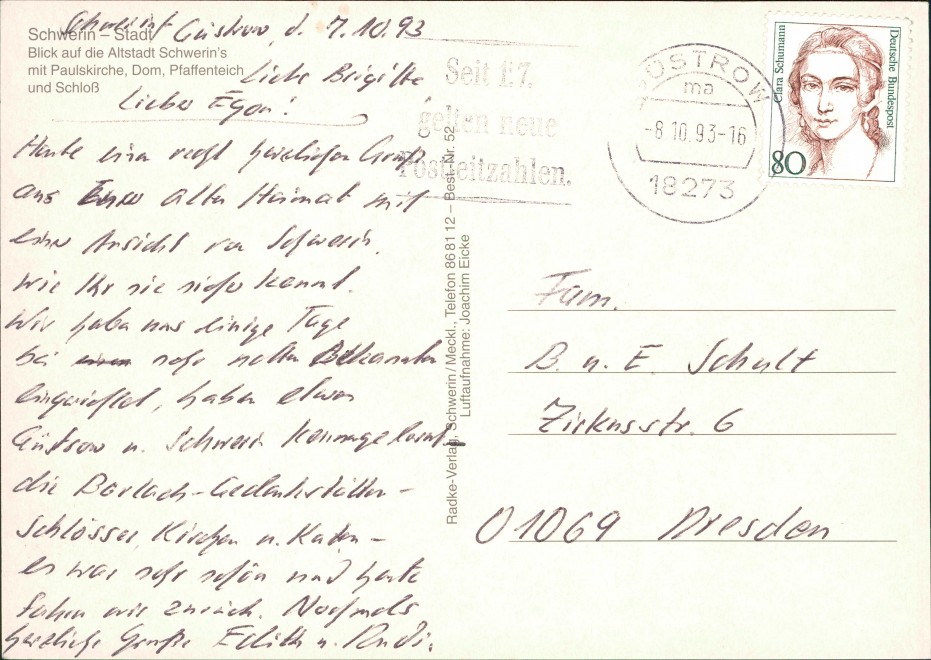 Schwerin – Stadt
Blick auf die Altstadt Schwerin's
mit Paulskirche, Dom, Pfaffenteich
und Schloß
Güstrow, d. 7.10.93
Liebe Brigitte
Lieber Egon!
Heute einen recht herzlichen Gruß
aus Eurer alten Heimat mit
einer Ansicht von Schwerin,
wie Ihr sie sicher kennt.
Wir haben uns einige Tage
bei sehr netten Bekannten
eingenistet, haben etwas
Güstrow u. Schwerin kennengelernt,
die Barlach-Gedenkstätten –
Schlösser, Kirchen u. Katen –
es war sehr schön und heute
fahren wir zurück. Nochmals
herzliche Grüße Edith u. Rudi.
Radke-Verlag, Schwerin/Meckl., Telefon 86 81 12 – Best.-Nr. 52
Luftaufnahme: Joachim Eicke
Seit 1.7.
gelten neue
Postleitzahlen.
GÜSTROW
ma
-8.10.93-16
18273
Clara Schumann
Deutsche Bundespost
80
Fam.
B. u. E. Schult
Zirkusstr. 6
01069 Dresden